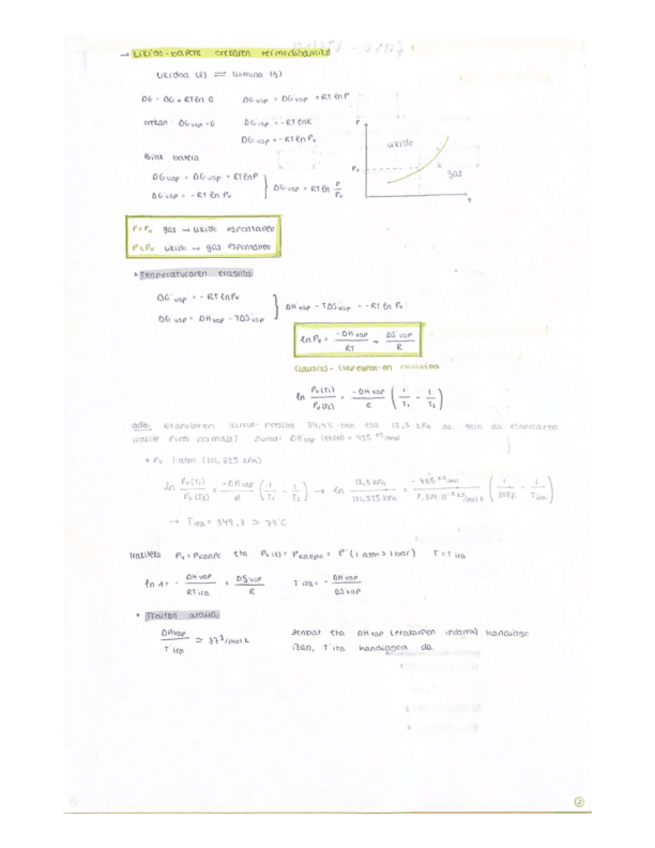 → Likido-bapore orekaren termodinamika
Likidoa (l) ⇌ Lurruna (g)
ΔG = ΔG° + RT ln Q ΔG vap = ΔG° vap + RT ln P
orekan: ΔG vap = 0 ΔG° vap = -RT ln K
ΔG° vap = -RT ln Pv
Biak batera
ΔG vap = ΔG° vap + RT ln P
ΔG° vap = -RT ln Pv } ΔG vap = RT ln P/Pv
P
likido
Pv
gas
T
P > Pv gas → likido espontaneo
P < Pv likido → gas espontaneo
• Tenperaturaren eragina
ΔG° vap = -RT ln Pv
ΔG° vap = ΔH° vap - TΔS° vap } ΔH° vap - TΔS° vap = -RT ln Pv
ln Pv = -ΔH vap/RT + ΔS vap/R
Clausius-Clapeyron-en ekuazioa
ln Pv(T1)/Pv(T2) = -ΔH vap/R (1/T1 - 1/T2)
adb. etanolaren lurrun-presioa 34,9°C-tan eta 13,3 kPa da. Zein da etanolaren
irakite puntu normala?
• Pv 1 atm (101,325 kPa)
ln Pv(T1)/Pv(T2) = -ΔH vap/R (1/T1 - 1/T2) → ln 13,3 kPa/101,325 kPa
→ T ira =
irakiteko Pv = Pkanpo eta Pv(T) = Pkanpo = P° (1 atm ≈ 1 bar) T = T ira
ln 1 = - ΔH vap/RT ira + ΔS vap/R T ira = ΔH vap/ΔS vap
• Trouton araua
ΔH vap/T ira ≈ 87 J/mol K Zenbat eta ΔH vap (erakarpen indarra) handiago
izan, T ira handiagoa da.
2